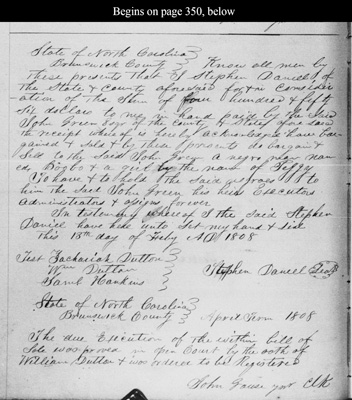 Begins on page 350, below
State of North Carolina
Brunswick County } Know all men by
These presents that I Stephen Daniell, of
the State & County aforesaid for & in consider-
ation of the Sum of four hundred & fifty
six dollars to me in hand paid by the
John Green of the County & State
the receipt whereof is hereby acknowledged have bar-
gained & sold & by these presents do bargain &
Sell to the Said John Grey a negro man nam
ed & a girl by the name of
To have & to hold the said negroes to
him the Said John Green his heirs Executors
administrators & assigns forever
In testimony whereof I the Said Stephen
Daniell have here unto Set my hand & Seal
This 13th day of Feby AD 1808
Test Zachariah Dutton
Wm Dutton } Stephen Daniell (Seal)
Saml Hankins
State of North Carolina
Brunswick County } April Term 1808
The due Execution of the within bill of
Sale was proved in open Court by the oath of
William Dutton & was ordered to be Registered
John Gause Clk